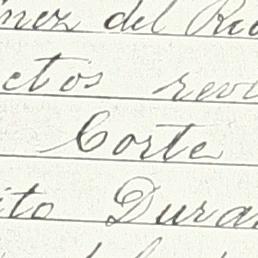 nez del Rio
ctos rev
Corte
ito Duran